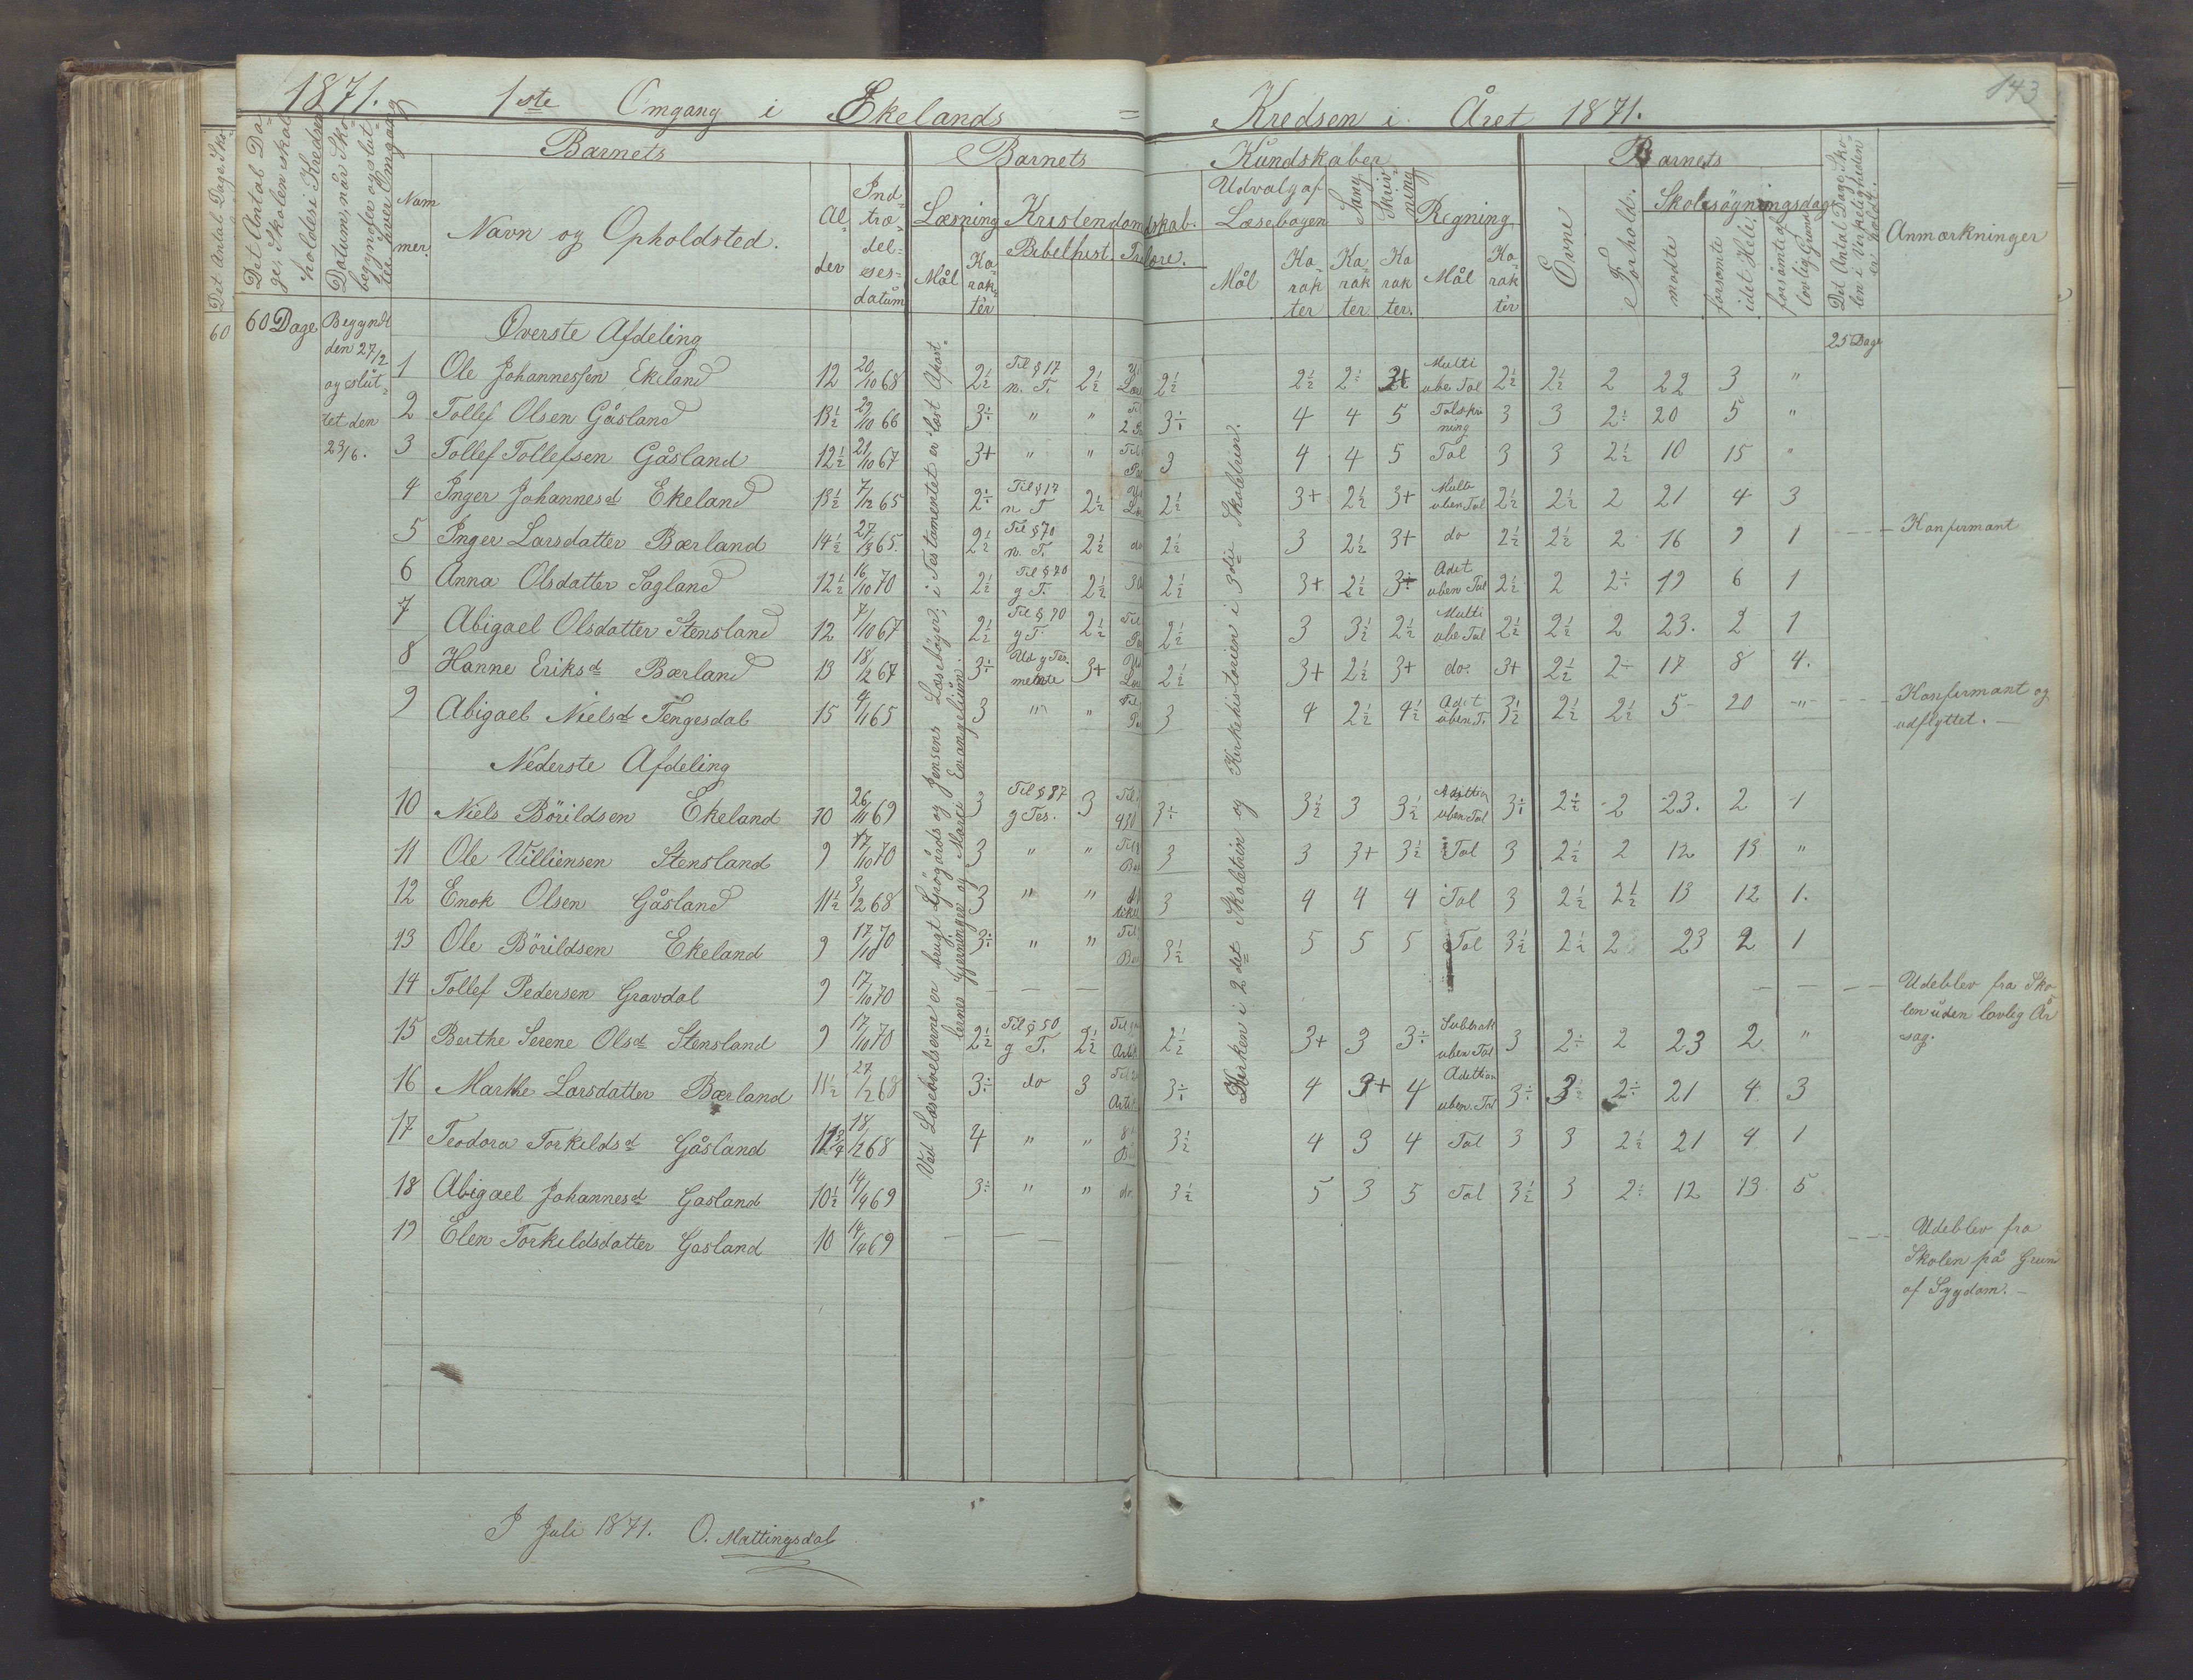 143
1871. 1ste Omgang i Ekelands = Kredsen i Året 1871.
Det Antal Dage Sko-
Det Antal Da-
ge, Skolen skal
holdes i Kredsen
Datum, når Sko-
len begynder og slut-
ter hver Omgang
Barnets
Num
mer.
Navn og Opholdsted.
Al-
der
Ind-
træ-
del-
ses-
datum
Barnets Kundskaber
Læsning
Mål
Ka-
rak-
ter
Kristendomskab.
Bibelhist. Troslære.
Udvalg af
Læsebogen
Mål
Ka-
rak
ter
Sang
Ka-
rak
ter
Skriv-
ning
Ka
rak
ter.
Regning
Mål
Ka-
rak
ter
Barnets
Evne
Forhold.
Skolesøgningsdage
mødte
forsømte
i det Hele.
forsømte af
lovlig Grund
Det Antal Dage Sko-
len i Virkeligheden
er holdt.
Anmærkninger
60
60 Dage
Begyndt
den 27/2
og slut-
tet den
23/6.
25 Dage
Øverste Afdeling
1 Ole Johannessen Ekeland 12 20/10 68 2½ Til § 17 n. T. 2½ 2½ 2½ 2÷ 3+ Multi uben Tal 2½ 2½ 2 22 3 "
2 Tollef Olsen Gåsland 13½ 29/10 66 3÷ " " 3÷ 4 4 5 Talskri ning 3 3 2÷ 20 5 "
3 Tollef Tollefsen Gåsland 12½ 21/10 67 3+ " " 3 4 4 5 Tal 3 3 2½ 10 15 "
4 Inger Johannesd Ekeland 13½ 7/12 65 2÷ Til § 17 n T 2½ 2½ 3+ 2½ 3+ Multi uben Tal 2½ 2½ 2 21 4 3
5 Inger Larsdatter Bærland 14½ 65. 2½ Til § 70 n. T. 2½ do 2½ 3 2½ 3+ do 2½ 2½ 2 16 9 1 Konfirmant
6 Anna Olsdatter Sagland 12½ 16/10 70 2½ Til § 70 g T. 2½ 2½ 3+ 2½ 3÷ Adit uben Tal 2½ 2 2÷ 19 6 1
7 Abigael Olsdatter Stensland 12 7/10 67 2½ Til § 70 g T. 2½ 2½ 3 3½ 2½ Multi ube Tal 2½ 2½ 2 23. 2 1
8 Hanne Eriksd Bærland 13 18/2 67 3÷ Ud g Tes. mente 3+ 2½ 3+ 2½ 3+ do. 3+ 2½ 2÷ 17 8 4.
9 Abigael Nielsd Tengesdal 15 4/11 65 3 " " 3 4 2½ 4½ Adit uben T. 3½ 2½ 2½ 5 20 " Konfirmant og
udflyttet.
Nederste Afdeling
10 Niels Börildsen Ekeland 10 26/11 69 3 Til § 87 g Tes. 3 3÷ 3½ 3 3½ Adittion uben Tal 3÷ 2½ 2 23. 2 1
11 Ole Villiensen Stensland 9 17/10 70 3 " " 3 3 3+ 3½ Tal 3 2½ 2 12 13 "
12 Enok Olsen Gåsland 11½ 3/2 68 3 " " 3 4 4 4 Tal 3 2½ 2½ 13 12 1.
13 Ole Börildsen Ekeland 9 17/10 70 3÷ " " 3½ 5 5 5 Tal 3½ 2½ 2 23 2 1
14 Tollef Pedersen Gravdal 9 17/10 70 Udeblev fra Sko-
len uden lovlig År-
sag.
15 Berthe Serene Olsd Stensland 9 17/10 70 2½ Til § 50 g T. 2½ 2½ 3+ 3 3÷ Subtrak uben Tal 3 2÷ 2 23 2 "
16 Marthe Larsdatter Bærland 11½ 27/2 68 3÷ do 3 3÷ 4 3+ 4 Adittion uben Tal 3÷ 3 2÷ 21 4 3
17 Teodora Torkildsd Gåsland 18/2 68 4 " " 3½ 4 3 4 Tal 3 3 2½ 21 4 1
18 Abigael Johannesd Gasland 10½ 14/4 69 3÷ " " do. 3½ 5 3 5 Tal 3½ 3 2÷ 12 13 5
19 Elen Torkildsdatter Gasland 10 14/4 69 Udeblev fra
Skolen på Grund
af Sygdom.
Ved Læseøvelserne er brugt og Jensens Læsebøger; i Testamentet er læst Apost-
lernes Gjerninger og Marci Evangelium.
Kirken i 2det Skoletrin og Kirkehistorien i 3die Skoletrin.
I Juli 1871. O. Mattingsdal